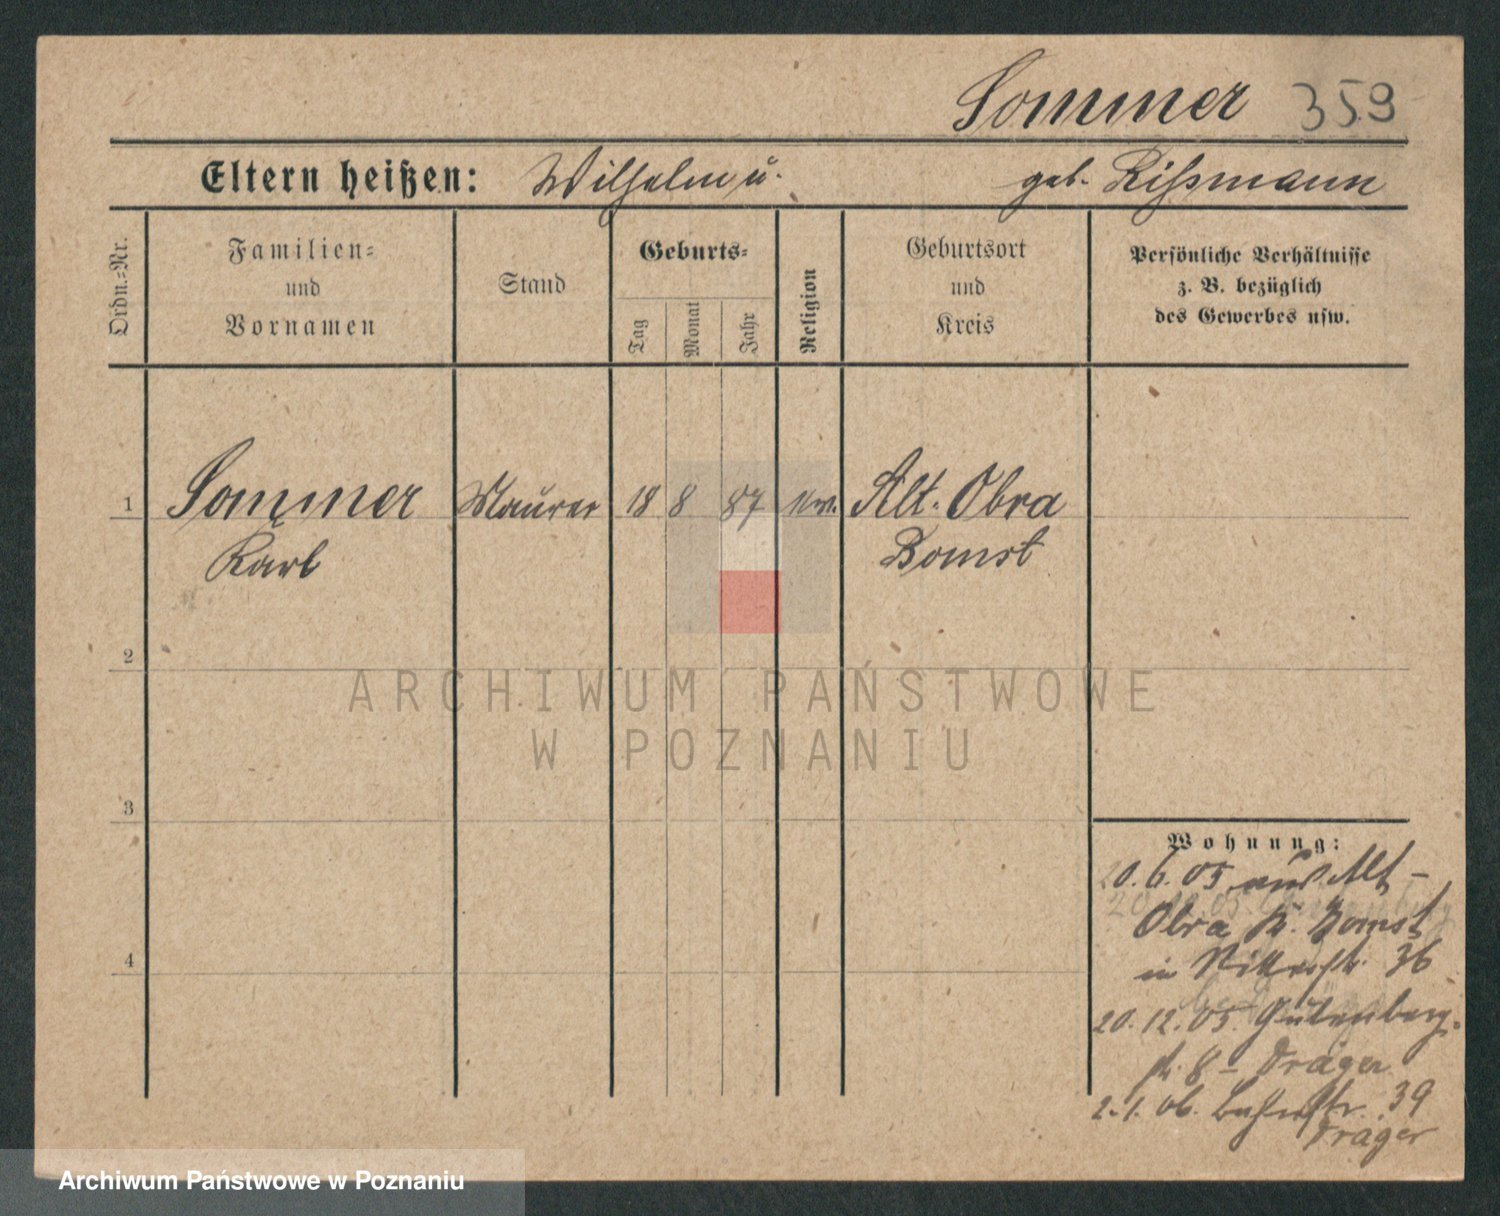 Sommer 359
Eltern heißen: Wilhelm u. geb. Rißmann
Ordn.=Nr.
Familien=
und
Vornamen
Stand
Geburts=
Tag
Monat
Jahr
Religion
Geburtsort
und
Kreis
Persönliche Verhältnisse
z. B. bezüglich
des Gewerbes usw.
1 Sommer Maurer 18 8 87 Alt-Obra
Karl Bomst
2
3
4
ARCHIWUM PAŃSTWOWE
W POZNANIU
Wohnung:
20.6.05 aus Alt-
Obra Kr. Bomst
in Ritterstr. 36
20.12.05. Gutenberg-
str. 8 – Dräger
2.1.06. Bahnstr. 39
Dräger
Archiwum Państwowe w Poznaniu